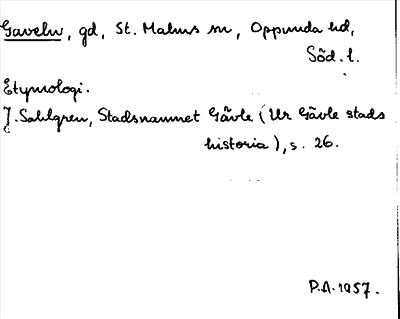 Gaveln, gd, St. Malms sn, Oppunda hd,
Söd. l.
Etymologi.
J. Sahlgren, Stadsnamnet Gävle (Ur Gävle stads
historia), s. 26.
P.A. 1957.